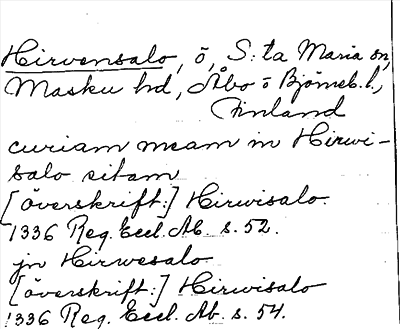 Hirvensalo, ö, S:ta Maria sn,
Masku hd, Åbo o Björneb. l.,
Finland
curiam meam in Hirwi-
salo sitam
[överskrift:] Hirwisalo.
1336 Reg. Eccl. Ab. s. 52.
jn Hirwesalo.
[överskrift:] Hirwisalo
1336 Reg. Eccl. Ab. s. 54.